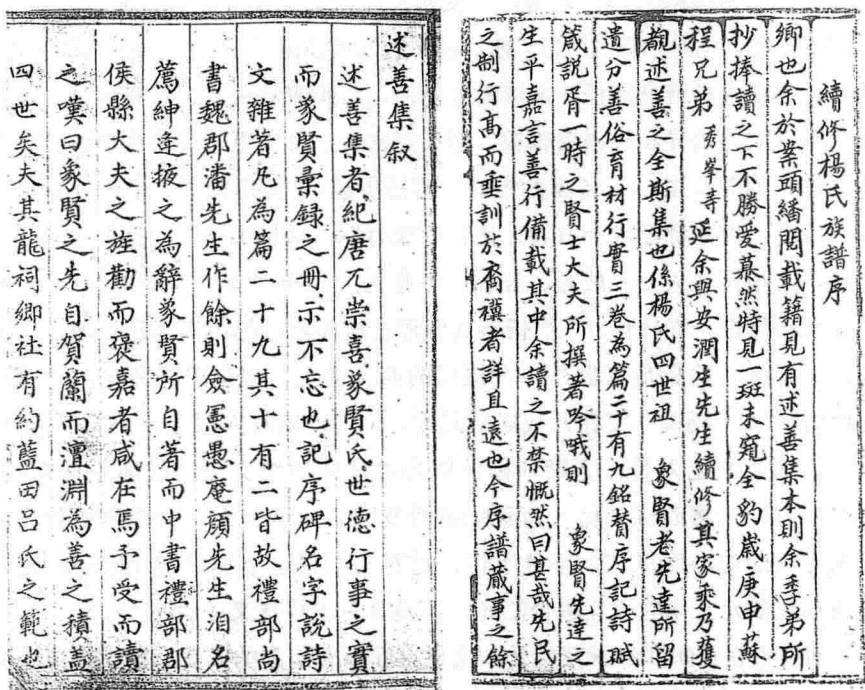 續修楊氏族譜序
卿也余於案頭繙閱載籍見有述善集本則余季弟所
抄捧讀之下不勝愛慕然特見一斑未窺全豹歲庚申蘇
程兄弟勇峯寺延余與安潤生先生續修其家乘乃獲
觀述善之全斯集也係楊氏四世祖象賢老先達所留
遺分善俗育材行實三卷為篇二十有九銘贊序記詩賦
箴說胥一時之賢士大夫所撰著吟哦則象賢先達之
生平嘉言善行備載其中余讀之不禁慨然曰甚哉先民
之制行高而垂訓於裔禩者詳且遠也今序譜蕆事之餘
述善集叙
述善集者紀唐兀崇喜象賢氏世德行事之實
而象賢彙錄之冊示不忘也記序碑名字說詩
文雜著凡為篇二十九其十有二皆故禮部尚
書魏郡潘先生作餘則僉憲愚庵顔先生洎名
薦紳逢掖之為辭象賢所自著而中書禮部郡
侯縣大夫之旌勸而褒嘉者咸在焉予受而讀
之嘆曰象賢之先自賀蘭而澶淵為善之積盖
四世矣夫其龍祠鄉社有約藍田呂氏之範也